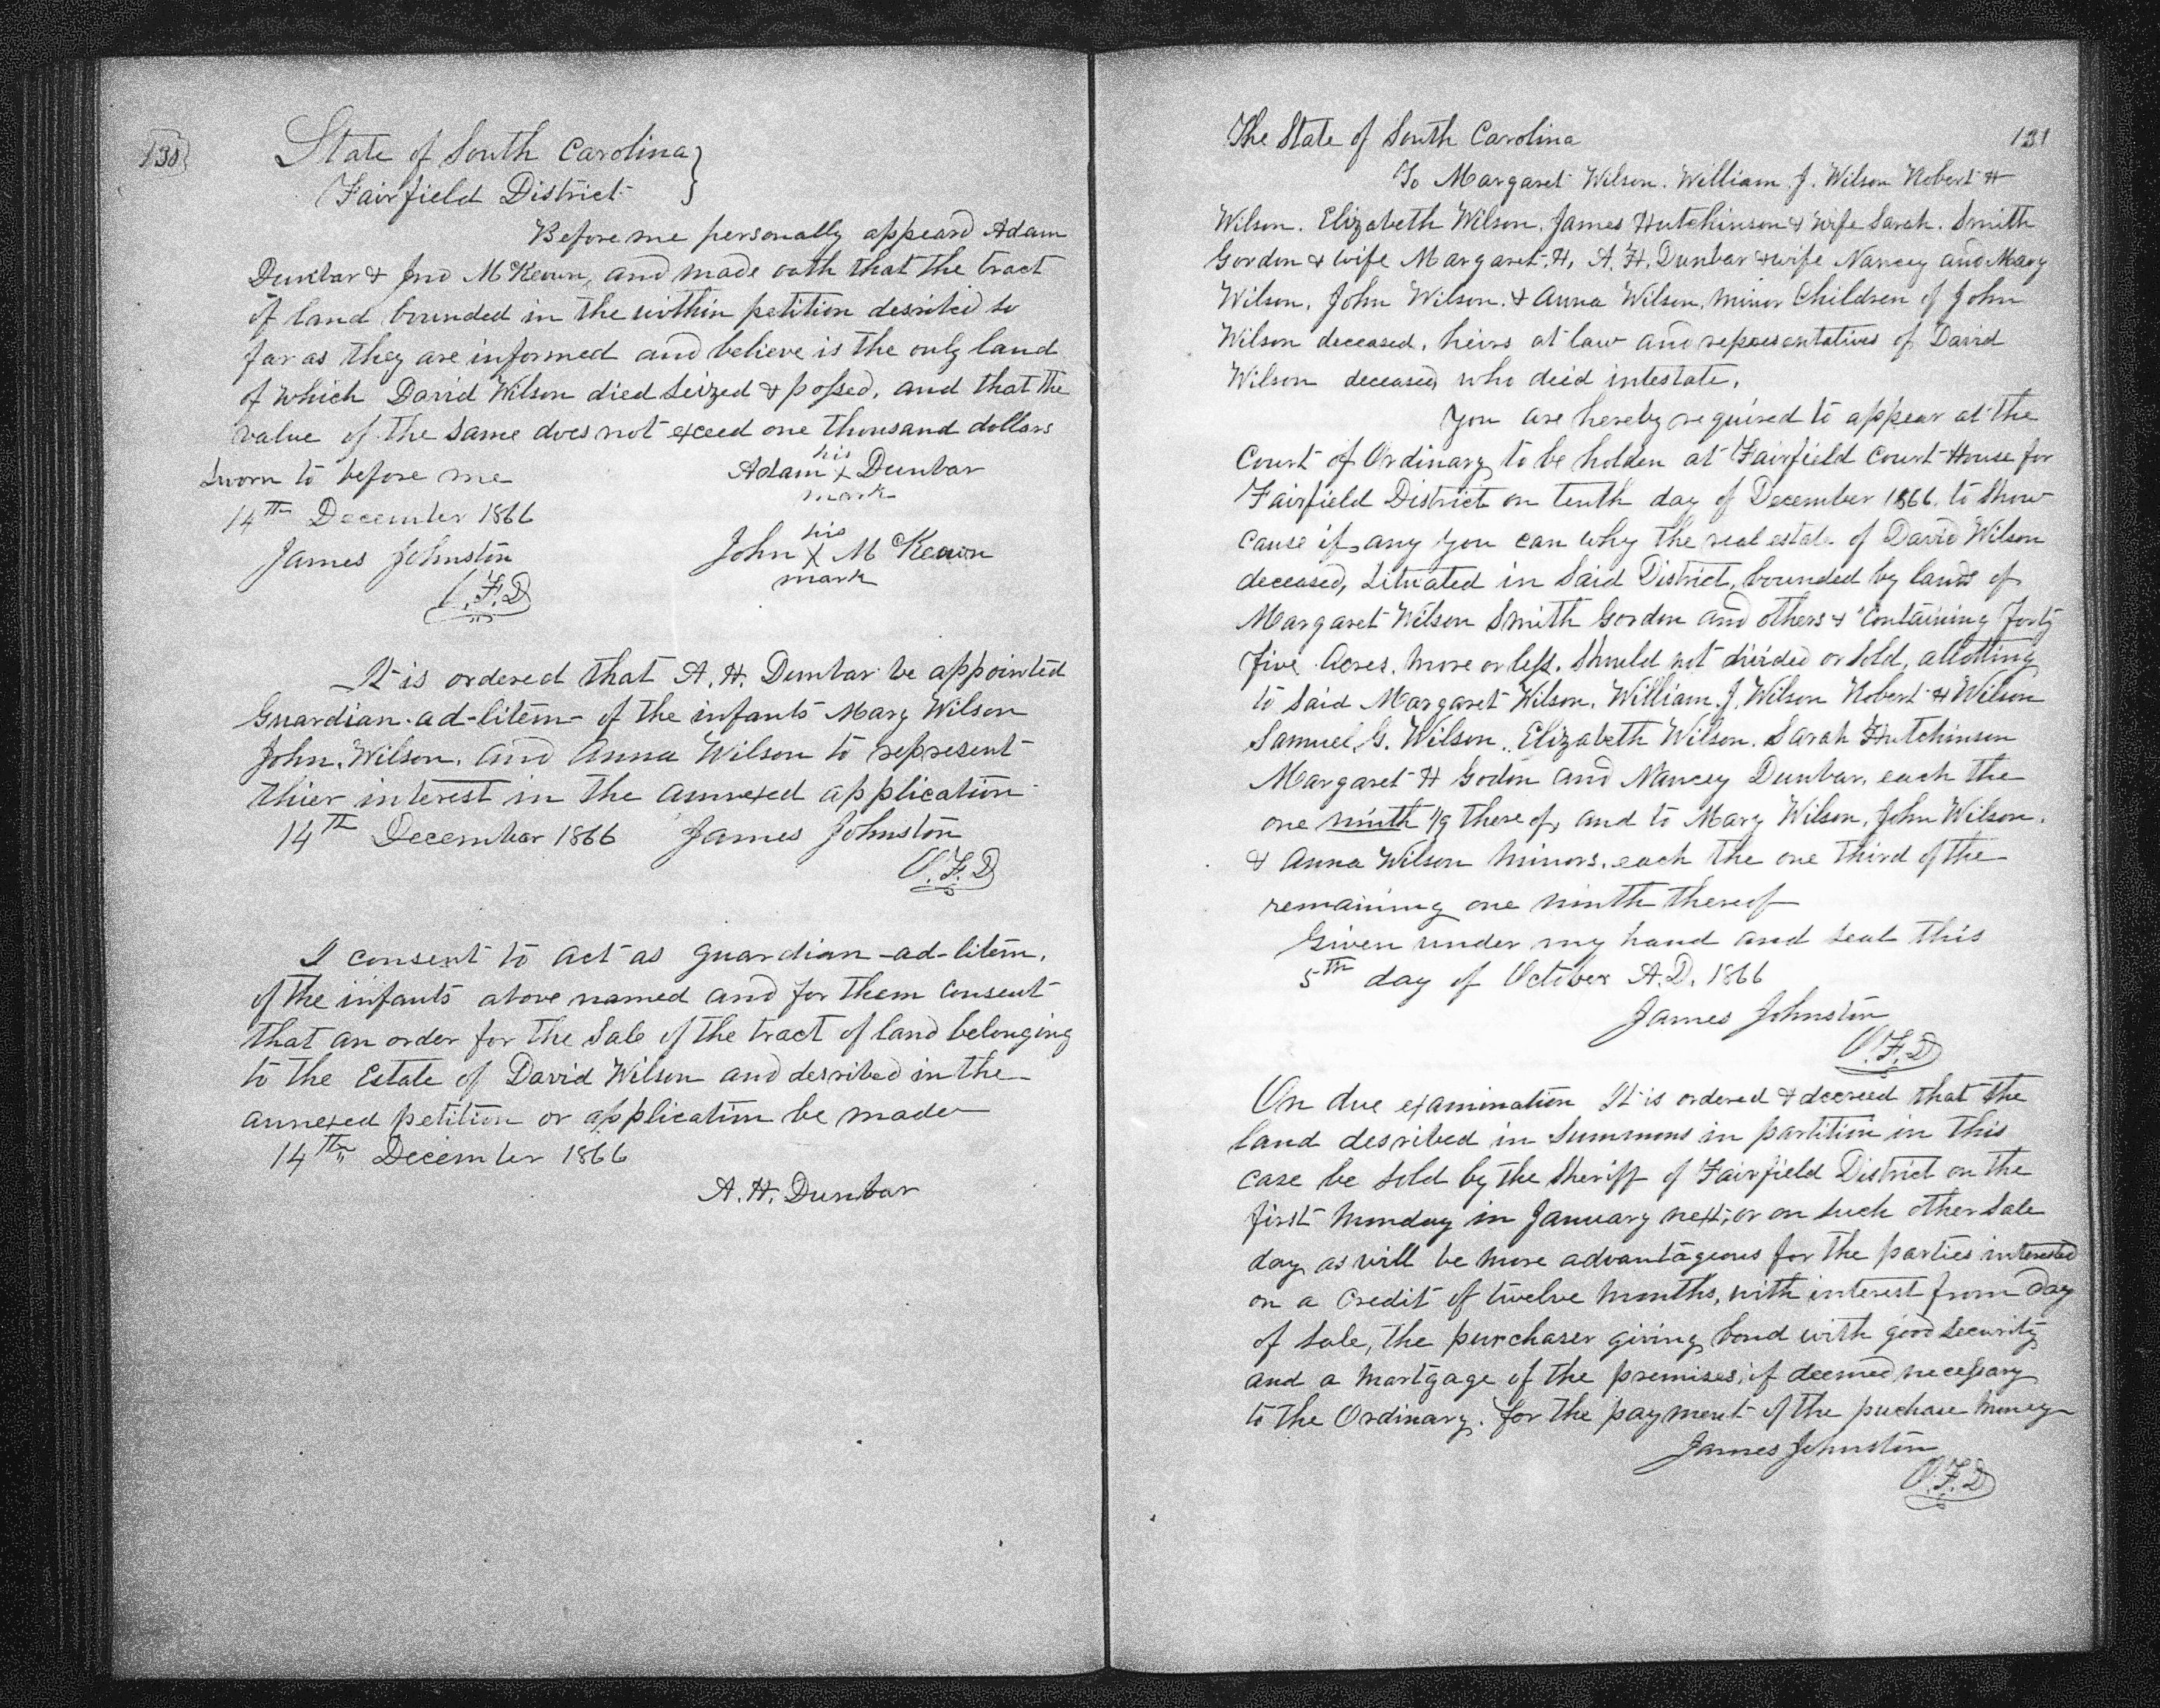 130
State of South Carolina }
Fairfield District }
Before me personally appeard Adam
Dunbar & Jno McKeown, and made oath that the tract
of land bounded in the within petition desribed so
far as they are informed and believe is the only land
of which David Wilson died seized & possed, and that the
value of the same does not exceed one thousand dollars
Sworn to before me
14th December 1866
James Johnston
O.F.D
his
Adam X Dunbar
mark
his
John X McKeown
mark
It is ordered that A. H. Dunbar be appointed
Guardian-ad-litem- of the infants Mary Wilson
John Wilson. and Anna Wilson to represent
thier interest in the annexed application
14th December 1866 James Johnston
O.F.D
I consent to act as guardian-ad-litem.
of the infants above named and for them consent
that an order for the Sale of the tract of land belonging
to the Estate of David Wilson and desribed in the
annexed petition or application be made
14th December 1866
A. H. Dunbar
131
The State of South Carolina
To Margaret Wilson. William J. Wilson Robert H
Wilson. Elizabeth Wilson. James Hutchinson & wife Sarah. Smith
Gordon & wife Margaret. H. A. H. Dunbar & wife Nancey and Mary
Wilson. John Wilson. & Anna Wilson. minor Children of John
Wilson deceased, heirs at law and representatives of David
Wilson deceased who deid intestate.
You are hereby required to appear at the
Court of Ordinary to be holden at Fairfield Court House for
Fairfield District on tenth day of December 1866. to show
cause if any you can why the real estate of David Wilson
deceased, Situated in Said District, bounded by lands of
Margaret Wilson Smith Gordon and others & Containing forty
five Acres. more or less. Should not divided or Sold, allotting
to said Margaret Wilson. William. J. Wilson Robert H Wilson
Samuel G. Wilson. Elizabeth Wilson. Sarah Hutchinson
Margaret H Godon and Nancey Dunbar, each the
one ninth 1/9 there of, and to Mary Wilson, John Wilson.
& Anna Wilson minors. each the one third of the
remaining one ninth thereof
Given under my hand and seal this
5th day of October A.D. 1866
James Johnston
O.F.D
On due examination It is ordered & decreed that the
land desribed in Summons in partition in this
case be sold by the Sheriff of Fairfield District on the
first Monday in January next, or on such other Sale
day as will be more advantageous for the parties interested
on a Credit of twelve months, with interest from day
of Sale, the purchaser giving bond with good Security
and a mortgage of the premises, if deemed necessary
to the Ordinary. for the payment of the puchase money
James Johnston
O.F.D